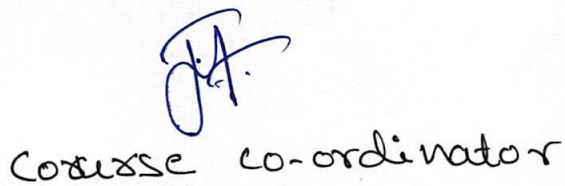 Course co-ordinator